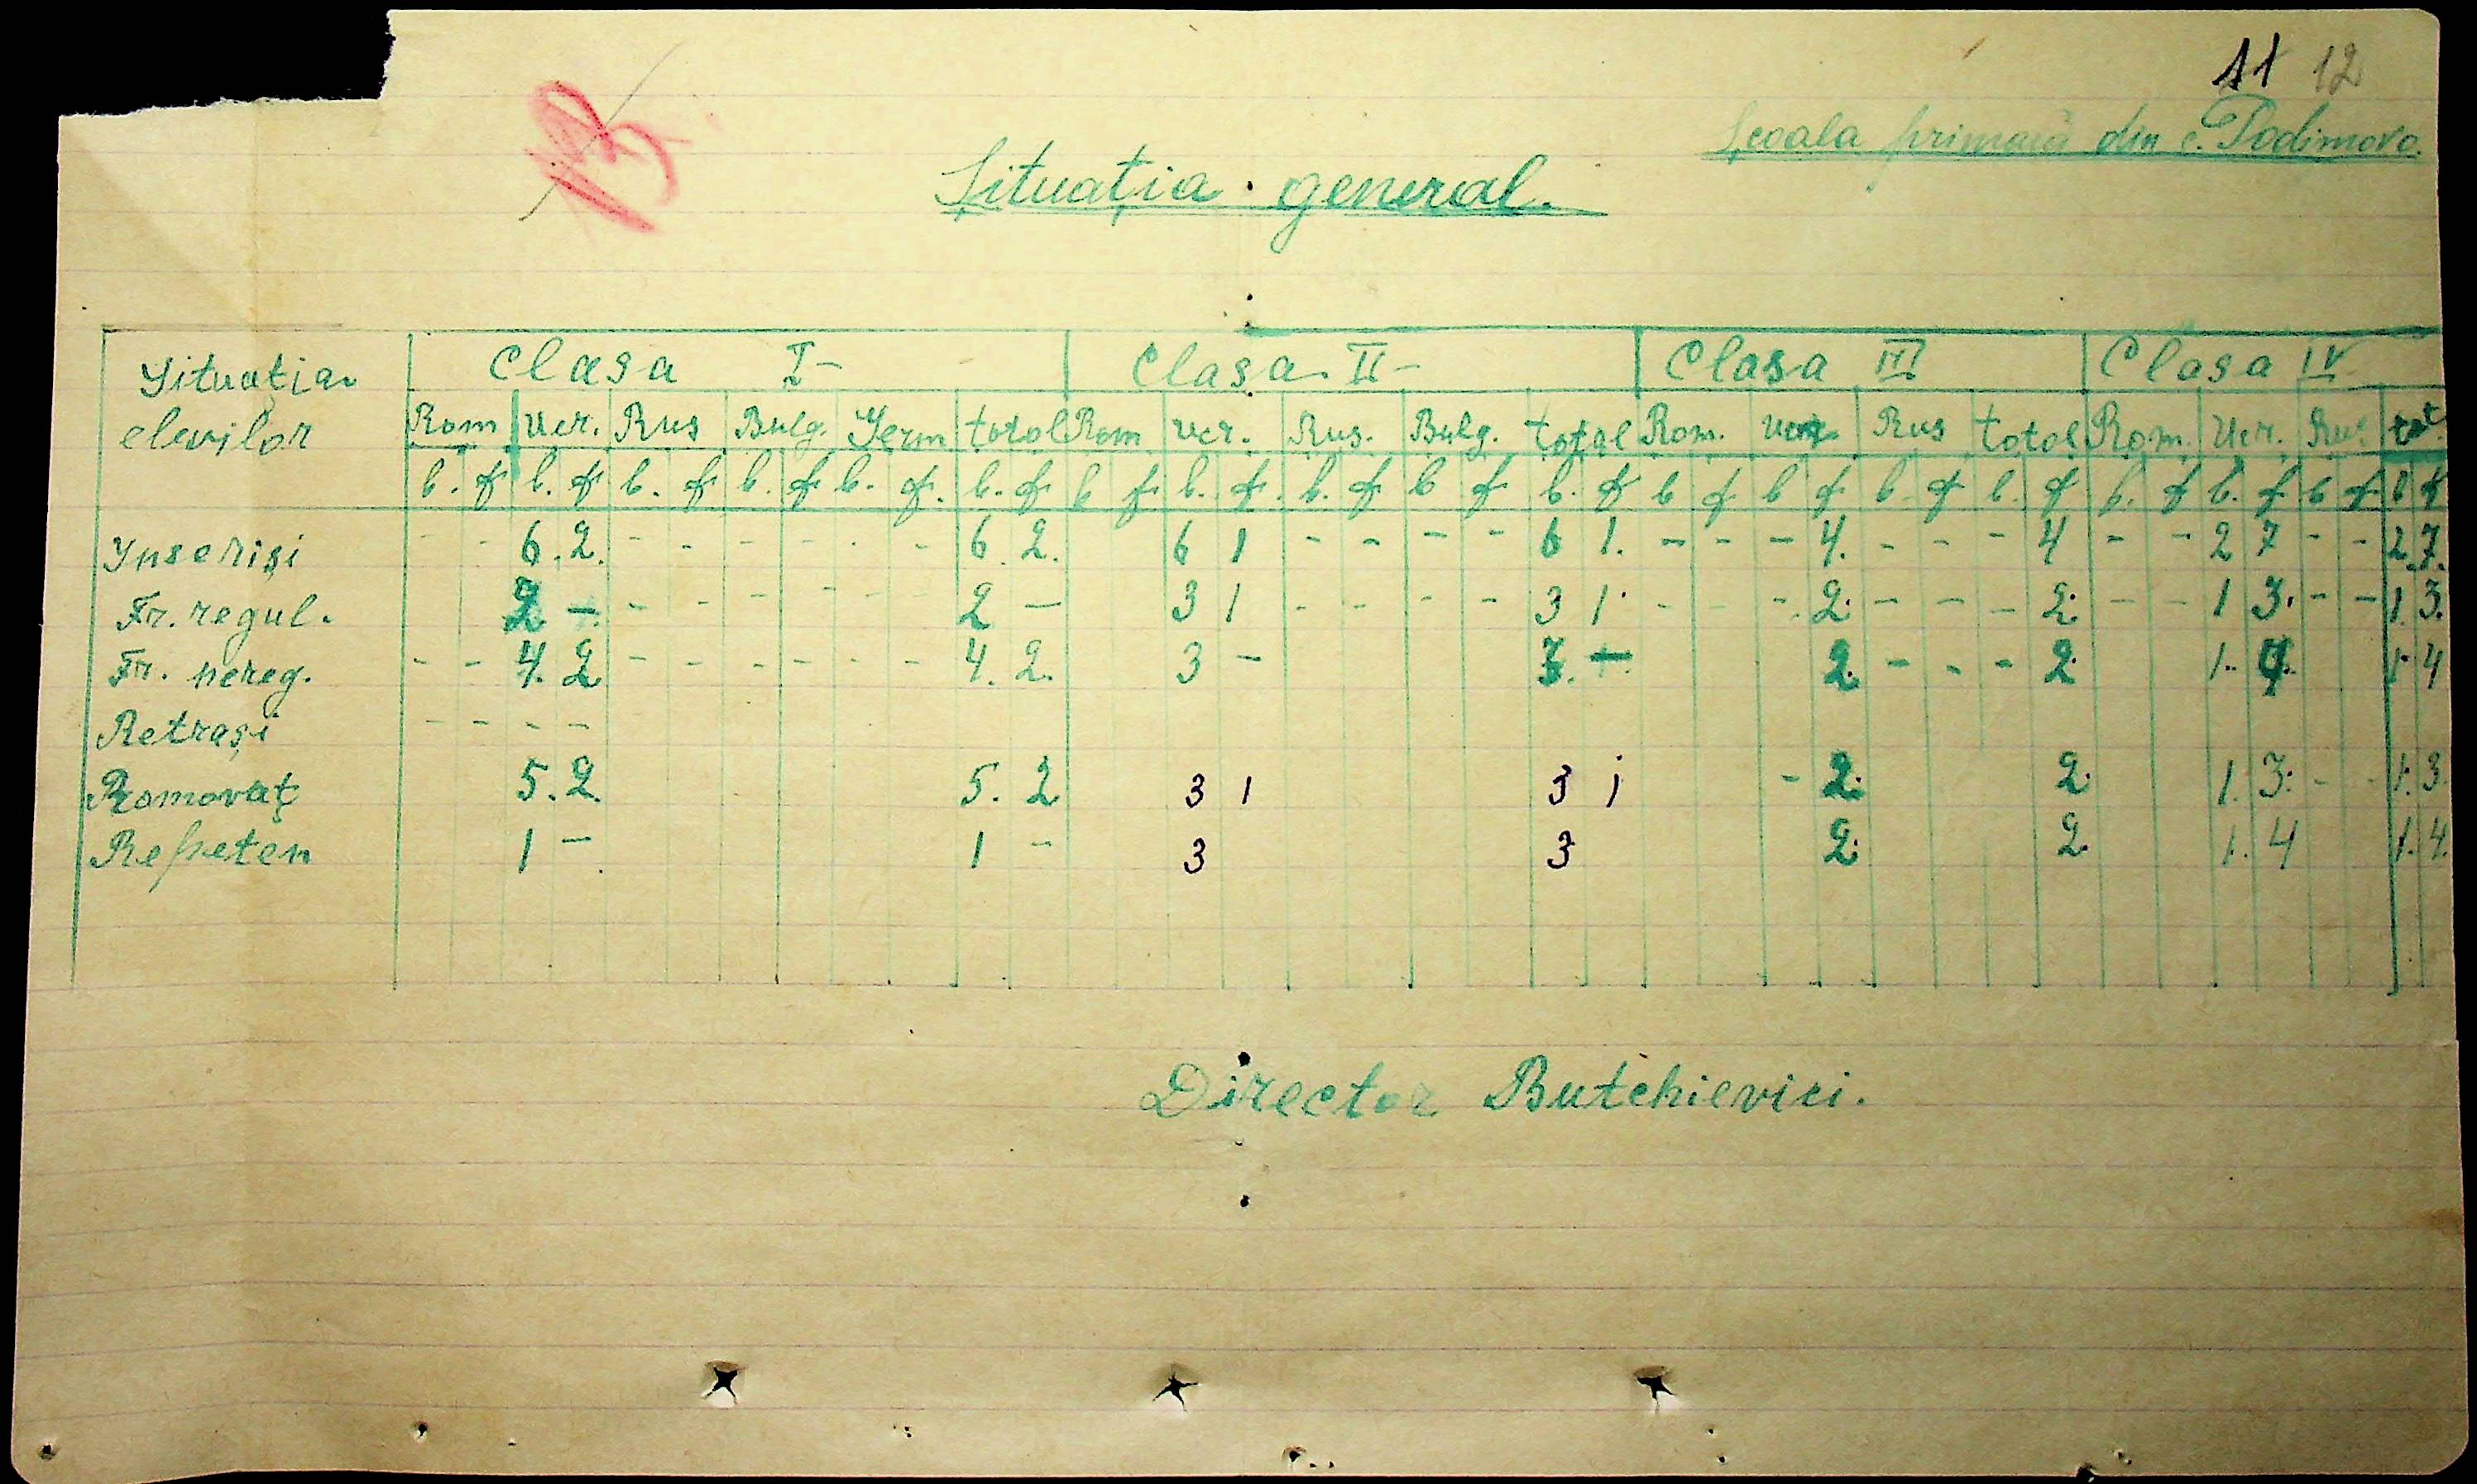 11 12
13
Școala primară din c. Todimovo.
Situația general.
Situația elevilor Clasa I- Clasa II- Clasa III Clasa IV
Rom Ucr. Rus Bulg. Germ total Rom Ucr. Rus. Bulg. total Rom. Ucr. Rus total Rom. Ucr. Rus tot
b. f b. f b. f b. f b. f. b. f b f b. f. b. f b f b. f b f b f b. f b. f b. f b. f b f b f
Inscriși - - 6. 2. - - - - - - 6. 2. 6 1 - - - - 6 1. - - - 4. - - - 4 - - 2 7 - - 2. 7.
Fr. regul. 2 - - - - - - - 2 - 3 1 - - - - 3 1 - - - 2. - - - 2. - - 1 3. - - 1. 3.
Fr. nereg. - - 4. 2 - - - - - - 4. 2. 3 - 3. - 2. - - - 2. 1. 4. 1. 4
Retrași - - - -
Romovaț 5. 2. 5. 2 3 1 3 1 - 2. 2. 1. 3. - - 1. 3.
Repeten 1 - 1 - 3 3 2. 2. 1. 4 1. 4.
Director Butchievici.